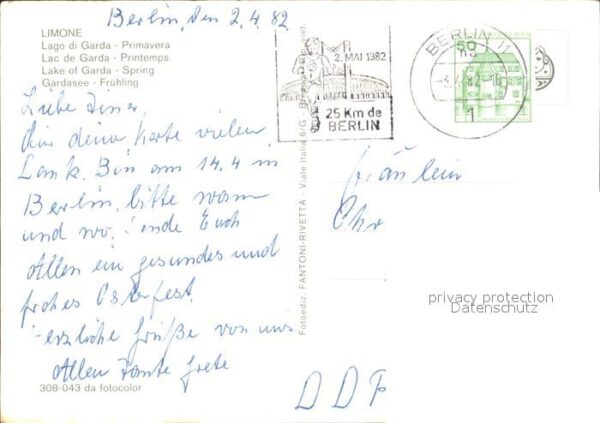 Berlin, den 2.4.82
LIMONE
Lago di Garda - Primavera
Lac de Garda - Printemps
Lake of Garda - Spring
Gardasee - Frühling
Liebe
für deine Karte vielen
Dank. Bin am 14.4 in
Berlin, bitte wann
und wo.
Euch
Allen ein gesundes und
frohes Osterfest.
Grüße von uns
Allen Tante Grete
308-043 da fotocolor
Fotoediz. FANTONI-RIVETTA - Viale Italia
2. MAI 1982
25 Km de
BERLIN
BERLIN 11
1
50
Fräulein
Chr
privacy protection
Datenschutz
DDR